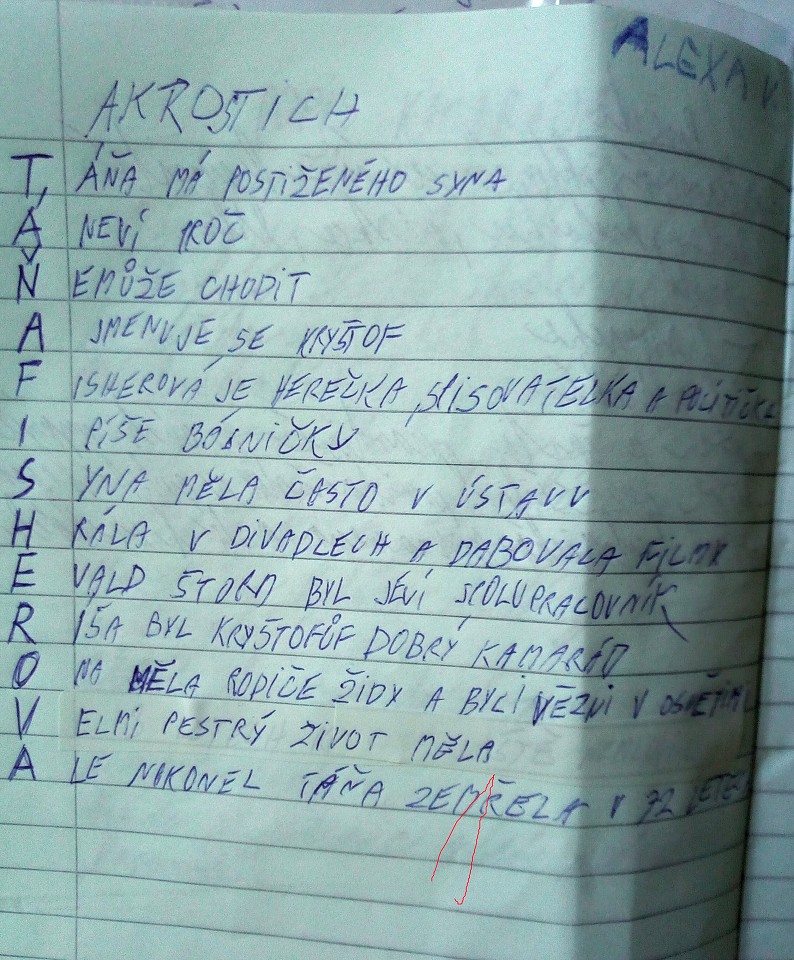 ALEXA V.
AKROSTICH
TÁŇA MÁ POSTIŽENÉHO SYNA
Á NEVÍ PROČ
ŇEMŮŽE CHODIT
A JMENUJE SE KRYŠTOF
FISHEROVÁ JE HEREČKA, SPISOVATELKA A POLITIČKA
I PÍŠE BÁSNIČKY
SYNA MĚLA ČASTO V ÚSTAVU
HRÁLA V DIVADLECH A DABOVALA FILMY
EVALD ŠTORM BYL JEJÍ SPOLUPRACOVNÍK
RÍŠA BYL KRYŠTOFŮF DOBRÝ KAMARÁD
ONA MĚLA RODIČE ŽIDY A BYLI VĚZNI V OSVĚTIMI
VELMI PESTRÝ ŽIVOT MĚLA
ALE NAKONEC TÁŇA ZEMŘELA V 72 LETECH